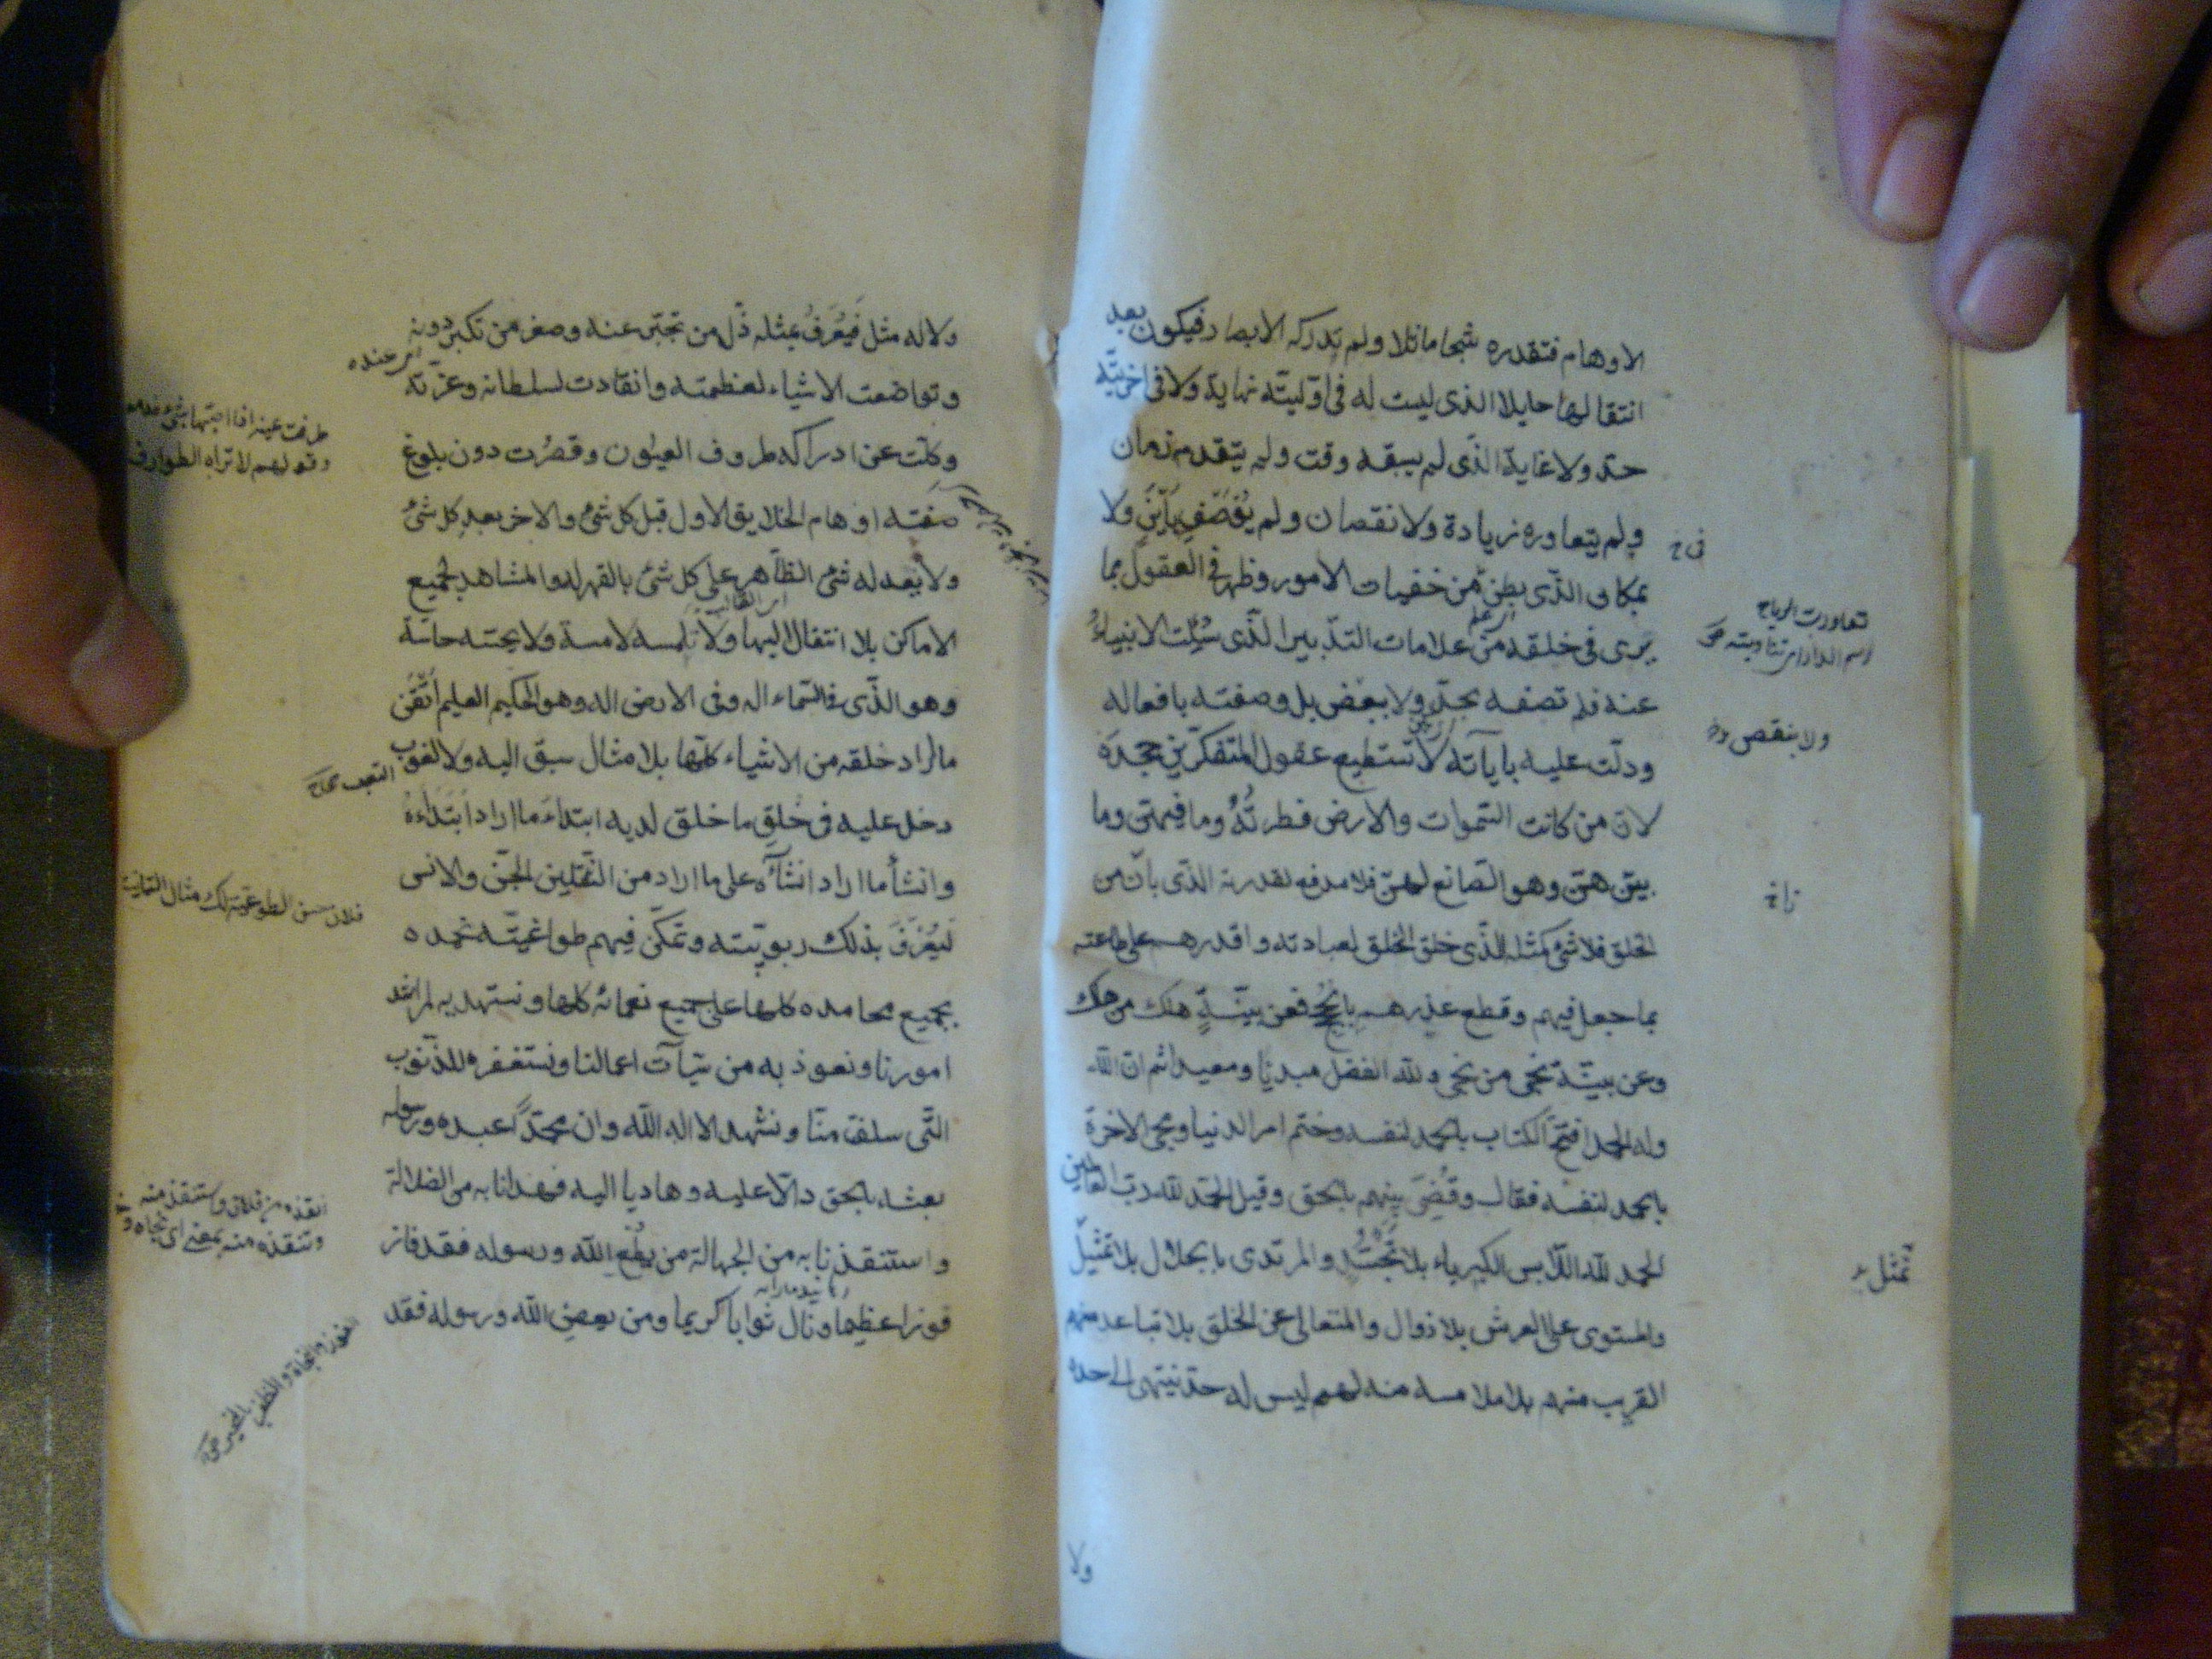 الاوهام فتقدره شبحا ماثلا ولم تدركه الابصار فيكون بعد
انتقالها حايلا الذى ليست له فى اوّليّته نهاية ولا فى اخريّته
حدّ ولا غاية الذّى لم يسبقه وقت ولم يتقدمه زمان
ولم يتعاوره زيادة ولا نقصان ولم يوصف باين ولا
بمكان الذّى بطن من خفيات الامور وظهر فى العقول بما
يرى فى خلقه من علامات التدبير الذّى سُئِلت الانبياءُ
عنه فلم تصفه بحدّ ولا ببعض بل وصفته بافعاله
ودلّت عليه باياته لا تستطيع عقول المتفكّرين جحدَه
لان من كانت السّموات والارض فطرتُهُ وما فيهنّ وما
بينهنّ وهو الصّانع لهنّ فلا مدفع لقدرته الذّى بان من
الخلق فلا شئ كمثله الذّى خلق الخلق لعبادته واقدرهم على طاعته
بما جعل فيهم وقطع عذرهم بالحُجج فعن بيّنةٍ هلك من هلك
وعن بيّنة نجى من نجى ولله الفضل مبديا ومعيدا ثم ان الله
وله الحمد افتتح الكتاب بالحمد لنفسه وختم امر الدنيا ومجئ الاخرة
بالحمد لنفسه فقال وقُضِىَ بينهم بالحق وقيل الحمد لله ربّ العالمين
الحمد لله اللّابس الكبرياء بلا تجسّد والمرتدى بالجلال بلا تمثيل
والمستوى على العرش بلا زوال والمتعالى عن الخلق بلا تباعد منهم
القريب منهم بلا ملامسه منه لهم ليس له حدّ ينتهى الى حده
فى خ
تعاورت الرياح
رسم الدار اى تناوبته
ولا بنقص
تمثّل
ولا
ولا له مثل فيُعرَفُ بمثله ذّل من تجبّر عنه وصغر من تكبر دونه
وتواضعت الاشياء لعظمته وانقادت لسلطانه وعزّته
وكلّت عن ادراكه طروف العيُون وقصُرت دون بلوغ
صفته اوهام الخلايق الاول قبل كل شئ والاخر بعد كل شئ
ولا يعدله شئ الظّاهر على كل شئ بالقهر له والمشاهد لجميع
الاماكن بلا انتقال اليها ولا تلمسه لامسة ولا يحسّه حاسّة
وهو الذّى فى السّماء اله وفى الارض اله وهو الحكيم العليم اتْقَن
ما اراد خلقه من الاشياء كلّها بلا مثال سبق اليه ولا لغوب
دخل عليه فى خلقِ ما خلق لديه ابتداءَ ما اراد ابتداءهُ
وانشأ ما اراد انشاءَه على ما اراد من الثّقلين الجنّ والانس
لَيُعْرَفَ بذلك ربوبيّته وتمكّن فيهم طواعيّته نحمده
بجميع محامده كلها على جميع نعمائه كلها ونستهديه لمراشد
امورنا ونعوذ به من سيّآت اعمالنا ونستغفره للذّنوب
التّى سلفت منّا ونشهد الا اله الّا الله وان محمّدًا عبده ورسوله
بعثه بالحق دالّا عليه وهاديا اليه فهدانا به من الضلالة
واستنقذنا به من الجهالة من يُطِع الله ورسوله فقد فاز
فوزا عظيما ونال ثوابا كريما ومن يعصِ الله ورسوله فقد
اى عنده
طرفت عينه اذا اصبتها بشئ فدمعت
وقولهم لا تراه الطوارف
اى الغالب
التعب
انقذه من فلان واستنقذه منه
وتنقذه منه بمعنى اى نجاه
الفوز النجاة والظفر بالخير